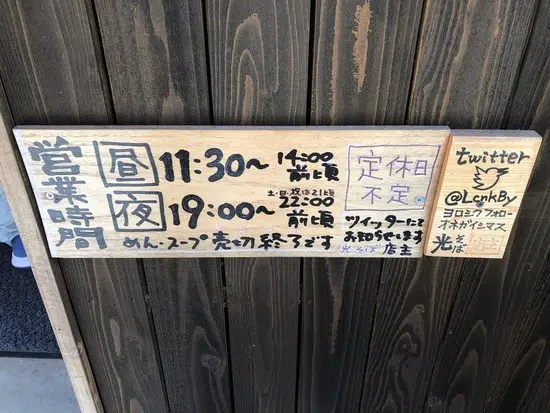 営業時間
昼 11:30〜 14:00前頃
夜 19:00〜 土・日・祝は21頃 22:00前頃
めん・スープ売切終了です
定休日
不定
ツイッターにて
お知らせします
光 そば 店主
twitter
@LcnkBy
ヨロシクフォロー
オネガイシマス
光 そば 店主